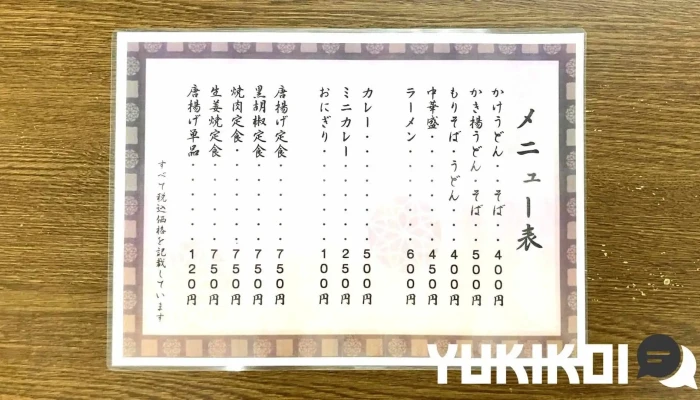 メニュー表
かけうどん・・そば・・400円
かき揚うどん・そば・・500円
もりそば・うどん・・・400円
中華盛・・・・・・・・450円
ラーメン・・・・・・・600円
カレー・・・・・・・・500円
ミニカレー・・・・・・250円
おにぎり・・・・・・・100円
唐揚げ定食・・・・・・750円
黒胡椒定食・・・・・・750円
焼肉定食・・・・・・・750円
生姜焼定食・・・・・・750円
唐揚げ単品・・・・・・120円
すべて税込価格を記載しています
YUKIKOI